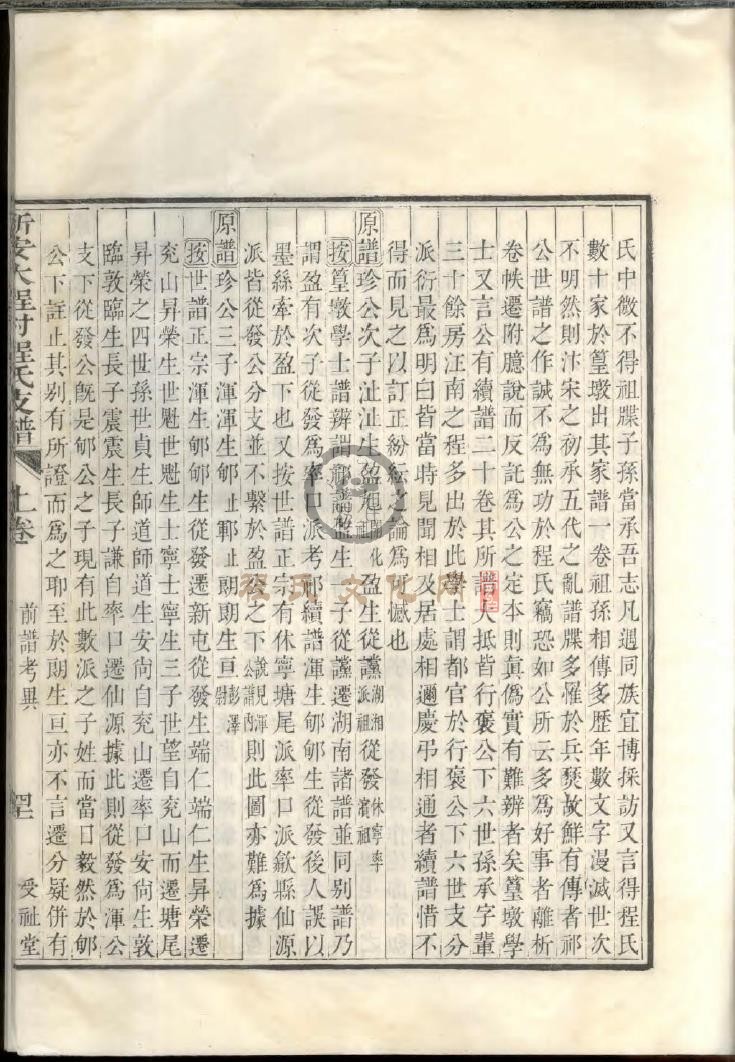 氏中微不得祖牒子孫當承吾志凡遇同族宜博採訪又言得程氏
數十家於篁墩出其家譜一卷祖孫相傳多歷年數文字漫滅世次
不明然則汴宋之初承五代之亂譜牒多罹於兵燹故鮮有傳者祁
公世譜之作誠不為無功於程氏竊恐如公所云多為好事者離析
卷帙遷附臆說而反託為公之定本則真偽實有難辨者矣篁墩學
士又言公有續譜二十卷其所譜大抵皆行褒公下六世孫承字輩
三十餘房江南之程多出於此學士謂都官於行褒公下六世支分
派衍最為明白皆當時見聞相及居處相邇慶弔相通者續譜惜不
得而見之以訂正紛紜之論為可憾也
原譜珍公次子沚沚生盈旭開化祖盈生從讜湖湘派祖從發休寧率
按篁墩學士譜辨謂鄱譜盈生一子從讜遷湖南諸譜並同別譜乃
謂盈有次子從發為率口派考祁續譜渾生郇郇生從發後人誤以
墨絲牽於盈下也又按世譜正宗有休寧塘尾派率口派歙縣仙源
派皆從發公分支並不繫於盈公之下說見渾公譜內則此圖亦難為據
原譜珍公三子渾渾生郇止鄆止朗朗生亘彭澤尉
按世譜正宗渾生郇郇生從發遷新屯從發生端仁端仁生昇榮遷
兖山昇榮生世魁世魁生士寧士寧生三子世望自兖山而遷塘尾
昇榮之四世孫世貞生師道師道生安尚自兖山遷率口安尚生敦
臨敦臨生長子震震生長子謙自率口遷仙源據此則從發為渾公
支下從發公既是郇公之子現有此數派之子姓而當日毅然於郇
公下註止其别有所證而為之耶至於朗生亘亦不言遷分疑併有
新安大程村程氏支譜 上卷 前譜考異 四 受祉堂